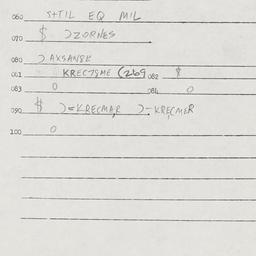 060 S+TIL EQ MIL
070 $ )ZORNES
080 ) AXSANSK
081 KRECTSME (269 082 $
083 0 084 0
090 $ )=KRECMAR )-KRECMER
100 0